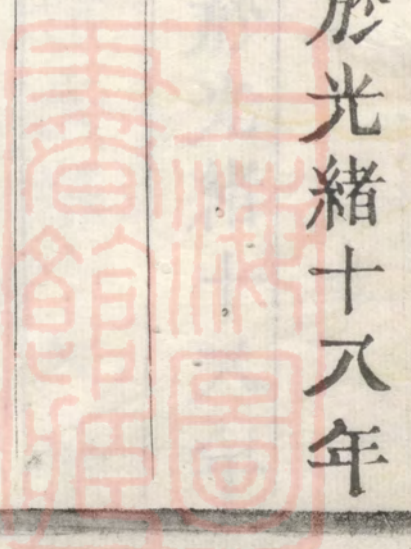 於光緒十八年
上海圖
書館藏